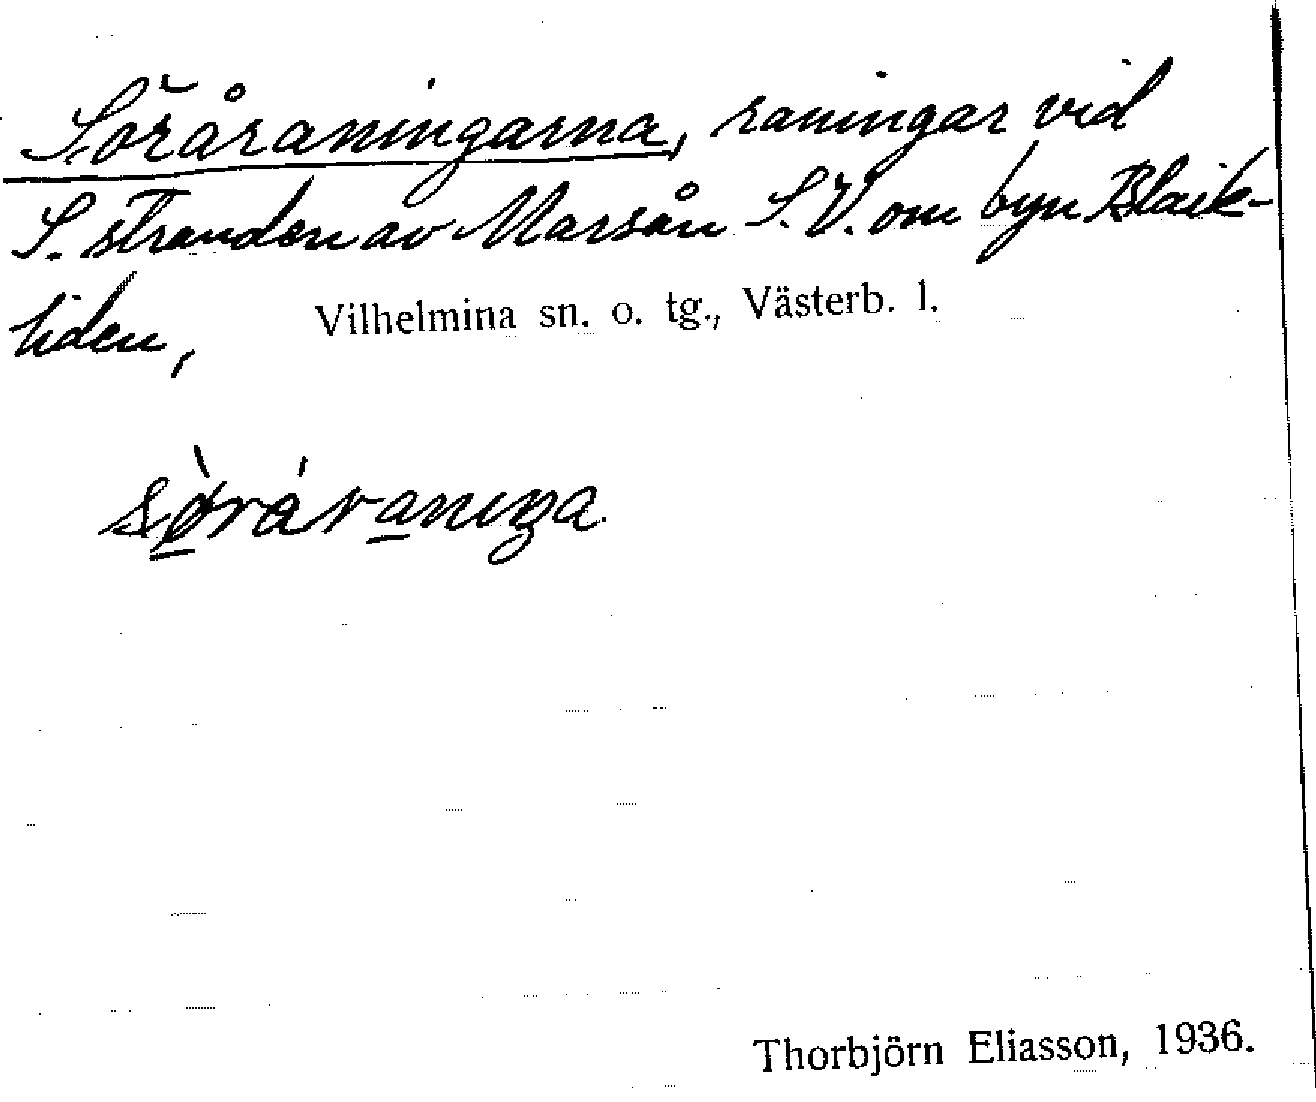 Söråraningarna, raningar vid
S. stranden av Marsån S.V. om byn Blaik-
liden,
Vilhelmina sn. o. tg., Västerb. l.
sø̀ráraniŋa
Thorbjörn Eliasson, 1936.